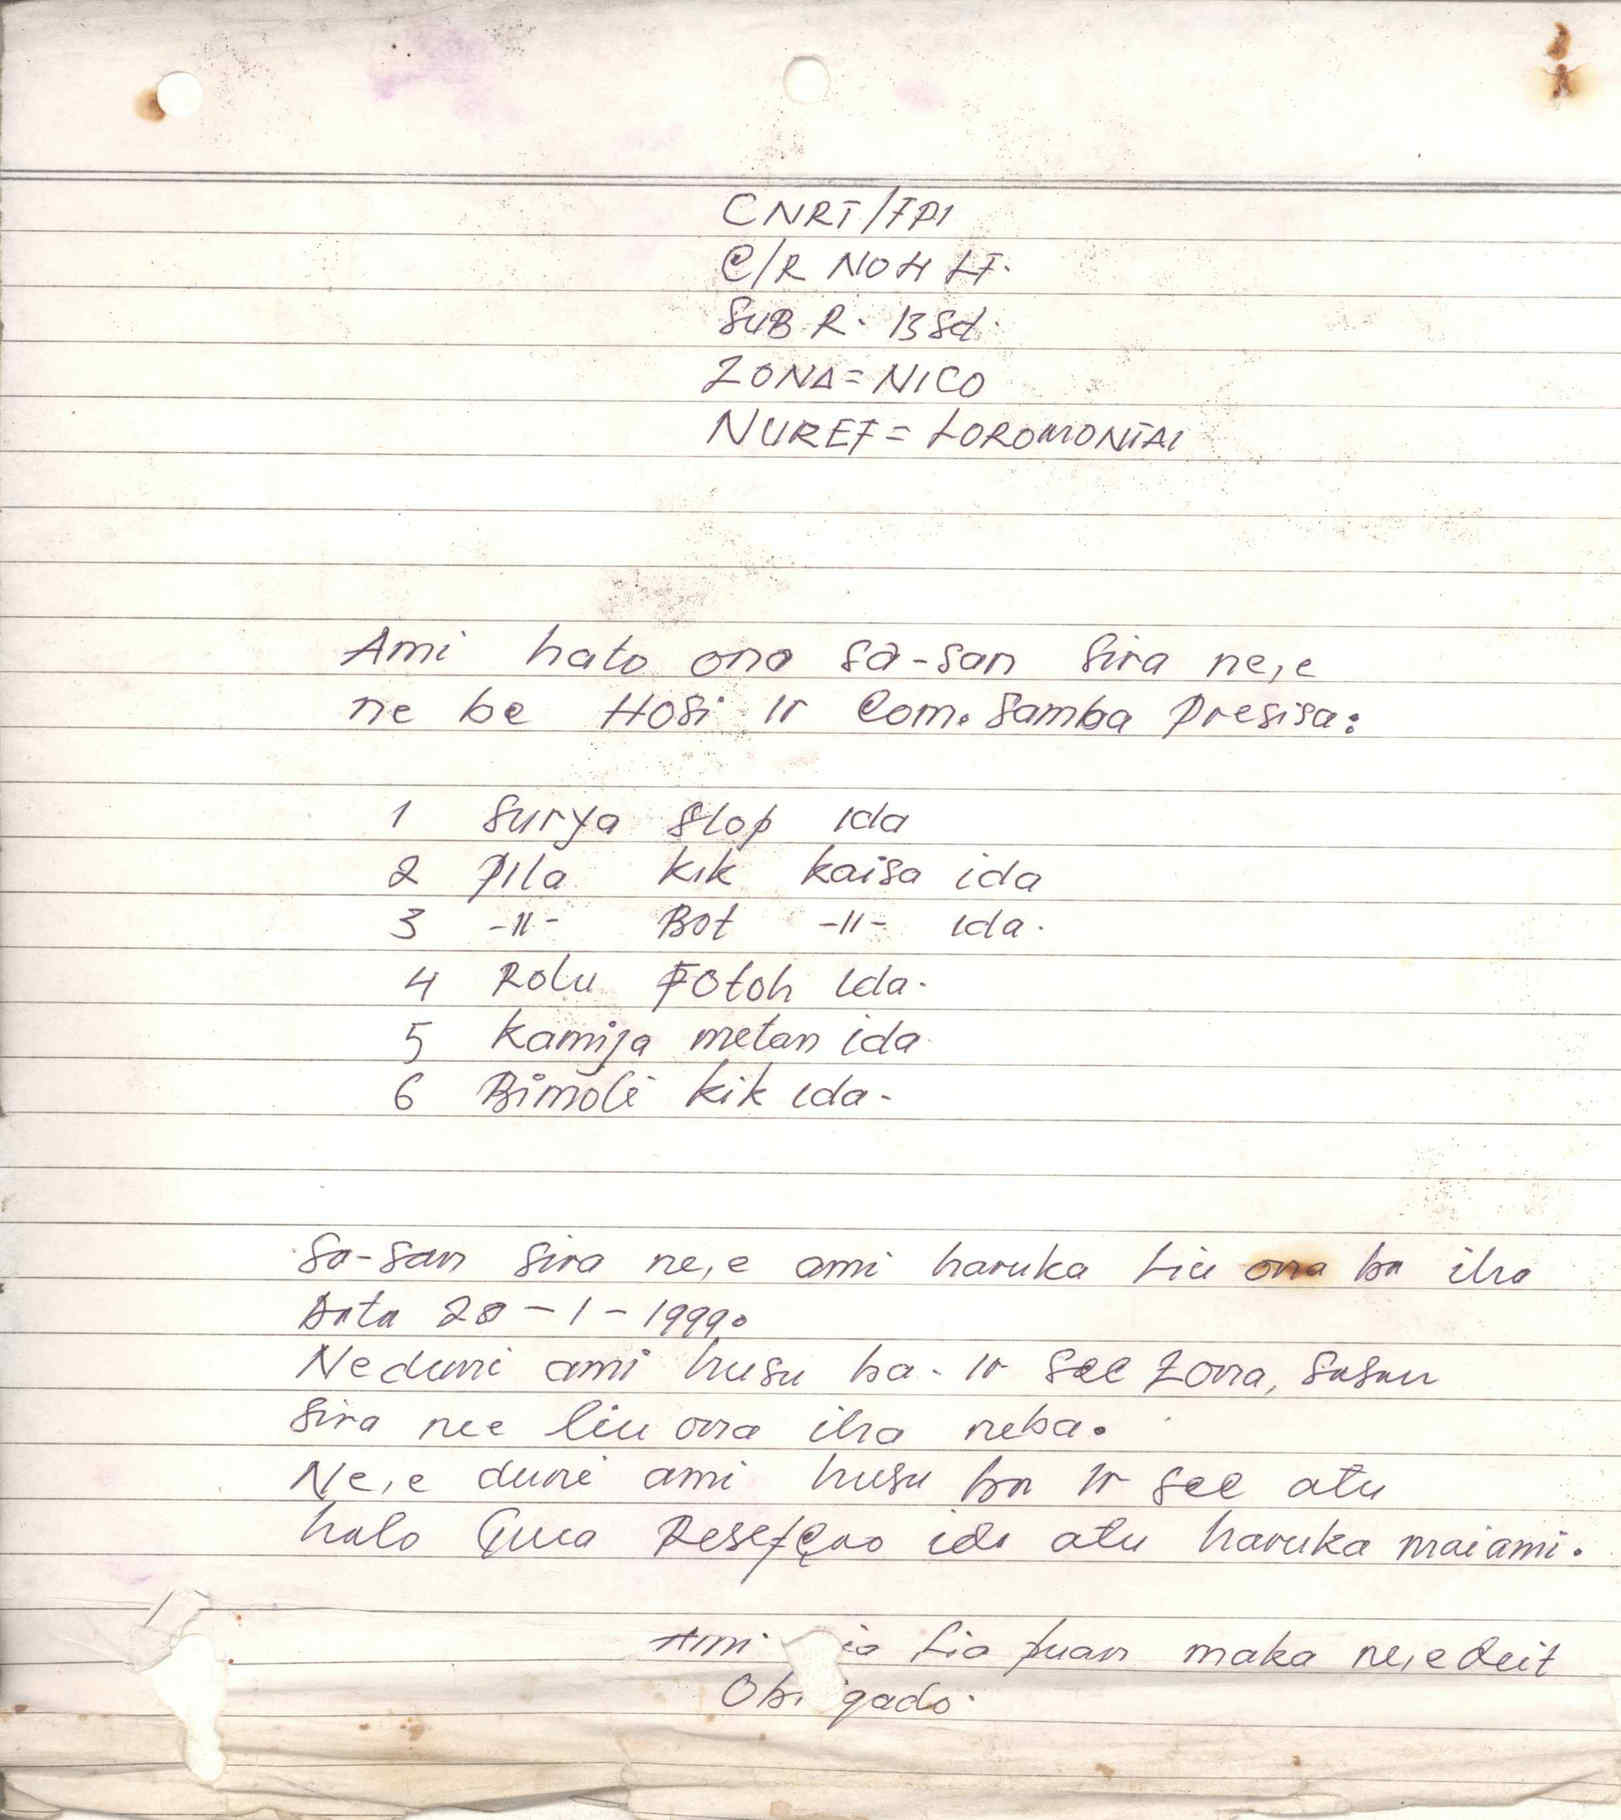 CNRT/FPI
C/R NO4 LF.
SUB R. BSd.
ZONA = NICO
NUREF = LOROMONTAI
Ami hato ona sa-san sira ne,e
ne be Hosi Ir Com. Samba Presisa:
1 Surya Slop ida
2 Pila kik kaisa ida
3 -"- Bot -"- ida.
4 Rolu Fotoh ida.
5 Kamija metan ida
6 Bimoli kik ida.
Sa-san sira ne,e ami haruka liu ona ba iha
Data 20-1-1999.
Neduni ami husu ba. Ir See Zona, sasan
sira nee liu ona iha neba.
Ne,e duni ami husu ba Ir see atu
halo Resefçao ida atu haruka mai ami.
Ami Lia fuan maka ne,e deit
Ob gado.